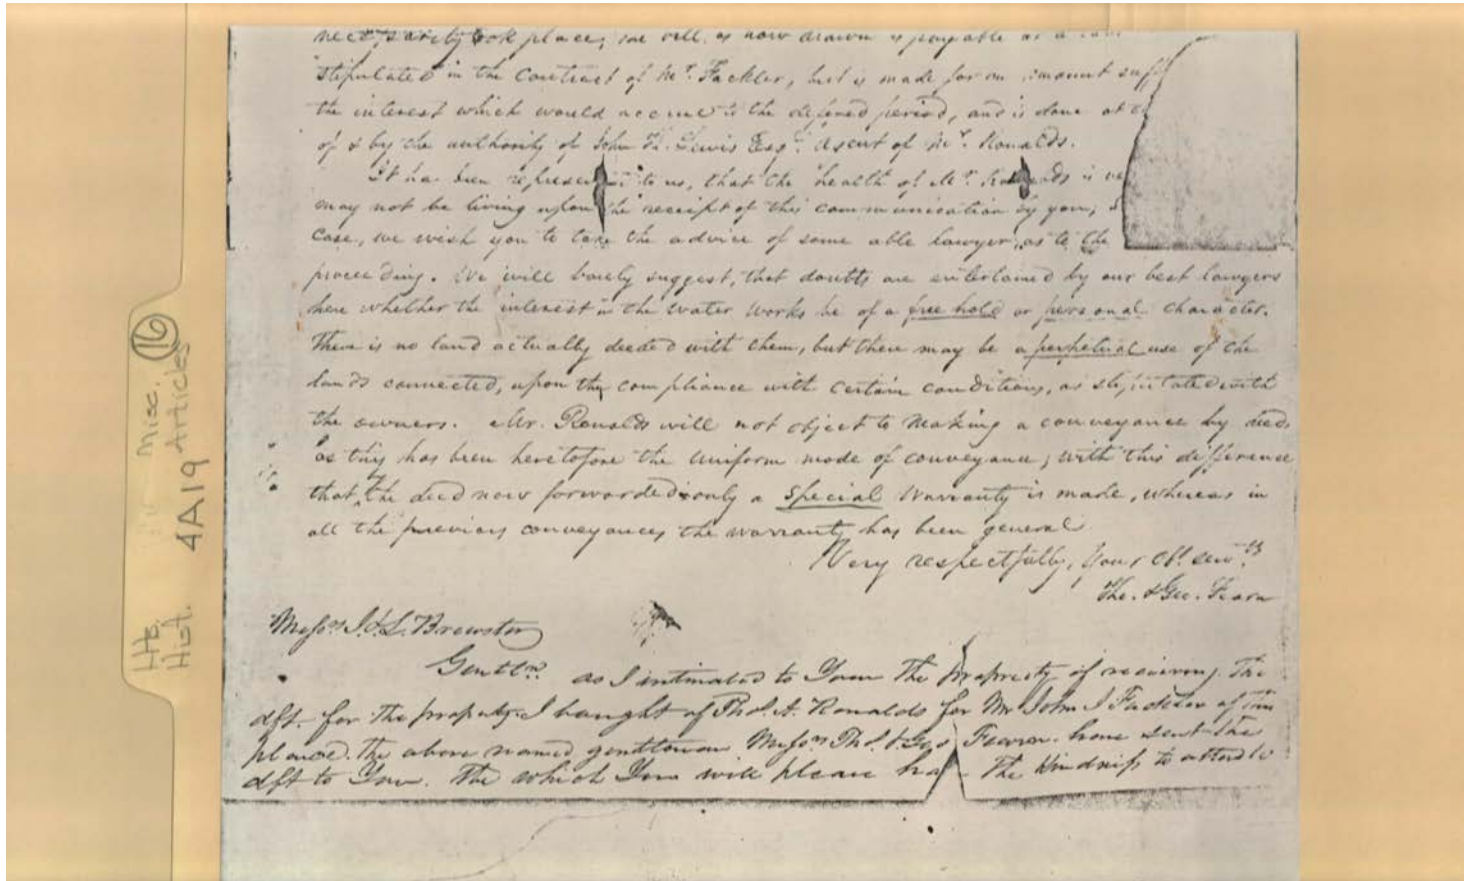 necessarily took place; the bill, as now drawn is payable as a
stipulated in the contract of Mr. Fackler, but is made for an amount
the interest which would accrue to the defered period, and is done at
of & by the authority of John H. Lewis Esqr. Agent of Mr. Ronalds.
It has been represented to us, that the health of Mr. Ronalds is
may not be living upon the receipt of this communication by you;
case, we wish you to take the advice of some able lawyer, as to the
proceeding. We will barely suggest, that doubts are entertained by our best lawyers
here whether the interest in the water works be of a free hold or personal character.
There is no land actually deeded with them, but there may be a perpetual use of the
lands connected, upon the compliance with certain conditions, as stipulated with
the owners. Mr. Ronalds will not object to making a conveyance by deed
as this has been heretofore the uniform mode of conveyance; with this difference
that, the deed now forwarded only a special warranty is made, whereas in
all the previous conveyances the warranty has been general
Very respectfully, your Ob. servts
Tho. & Geo. Fearn
Messrs J. & L. Brewster
Gentln. as I intimated to You the propriety of recieving The
dft. for the property I bought of Tho. A. Ronalds for Mr John J Fackler of this
place. the above named gentleman Messrs Tho. & Geo Fearn have sent the
dft to You. the which You will please have The kindness to attend to
Hb. Misc. 16
Hist. 4A19 Articles